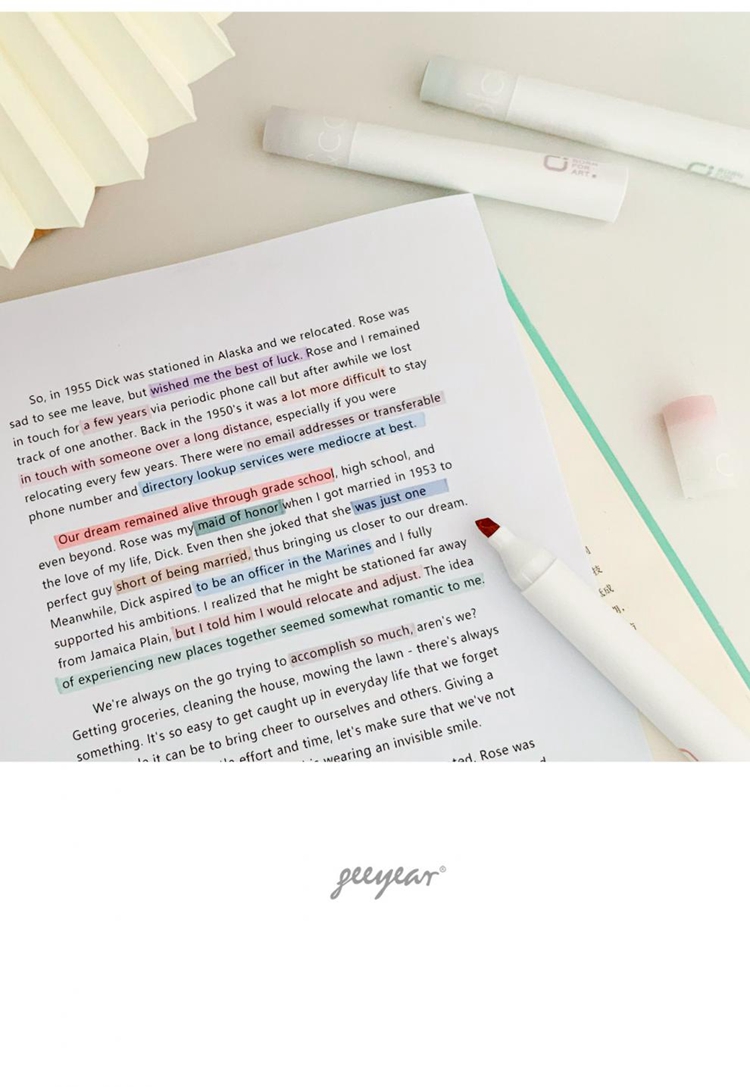 So, in 1955 Dick was stationed in Alaska and we relocated. Rose was
sad to see me leave, but wished me the best of luck. Rose and I remained
in touch for a few years via periodic phone call but after awhile we lost
track of one another. Back in the 1950's it was a lot more difficult to stay
in touch with someone over a long distance, especially if you were
relocating every few years. There were no email addresses or transferable
phone number and directory lookup services were mediocre at best.
Our dream remained alive through grade school, high school, and
even beyond. Rose was my maid of honor when I got married in 1953 to
the love of my life, Dick. Even then she joked that she was just one
perfect guy short of being married, thus bringing us closer to our dream.
Meanwhile, Dick aspired to be an officer in the Marines and I fully
supported his ambitions. I realized that he might be stationed far away
from Jamaica Plain, but I told him I would relocate and adjust. The idea
of experiencing new places together seemed somewhat romantic to me.
We're always on the go trying to accomplish so much, aren't we?
Getting groceries, cleaning the house, mowing the lawn - there's always
something. It's so easy to get caught up in everyday life that we forget
it can be to bring cheer to ourselves and others. Giving a
effort and time, let's make sure that we've not
wearing an invisible smile.
Rose was
FOR
ART
geeyear®